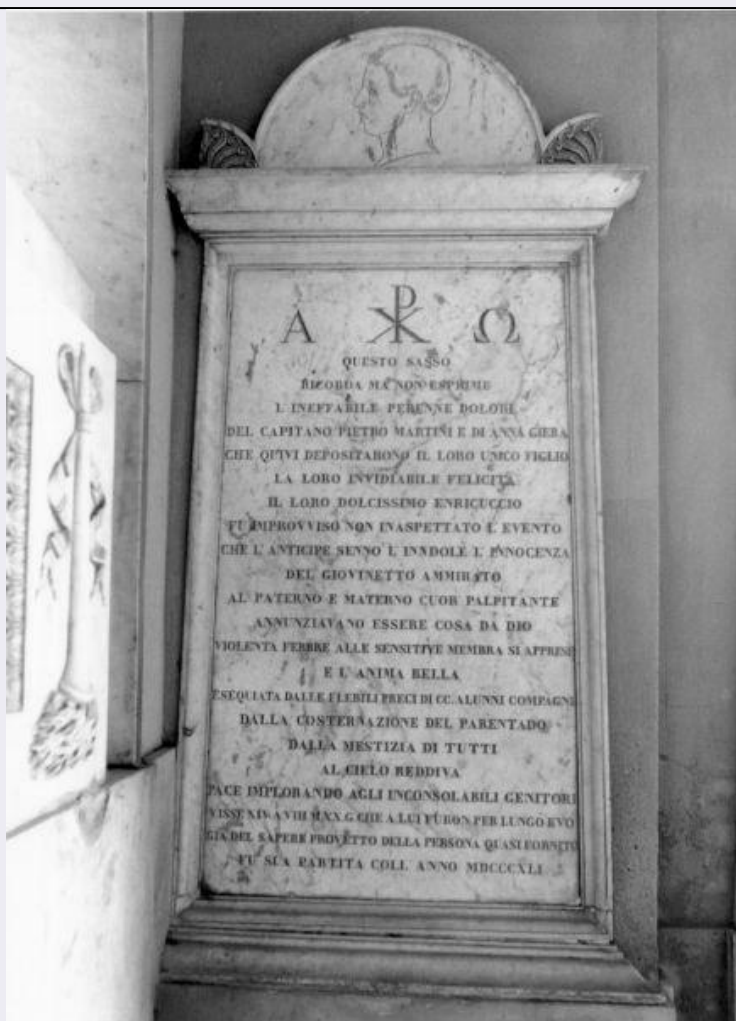 Α ☧ Ω
QUESTO SASSO
RICORDA MA NON ESPRIME
L'INEFFABILE PERENNE DOLORE
DEL CAPITANO PIETRO MARTINI E DI ANNA GIERA
CHE QUIVI DEPOSITARONO IL LORO UNICO FIGLIO
LA LORO INVIDIABILE FELICITÀ
IL LORO DOLCISSIMO ENRICUCCIO
FU IMPROVVISO NON INASPETTATO L'EVENTO
CHE L'ANTICIPE SENNO L'INNDOLE L'INNOCENZA
DEL GIOVINETTO AMMIRATO
AL PATERNO E MATERNO CUOR PALPITANTE
ANNUNZIAVANO ESSERE COSA DA DIO
VIOLENTA FEBBRE ALLE SENSITIVE MEMBRA SI APPRESE
E L'ANIMA BELLA
ESEQUIATA DALLE FLEBILI PRECI DI CC. ALUNNI COMPAGNI
DALLA COSTERNAZIONE DEL PARENTADO
DALLA MESTIZIA DI TUTTI
AL CIELO REDDIVA
PACE IMPLORANDO AGLI INCONSOLABILI GENITORI
VISSE XIV A VIII M XX G CHE A LUI FURON PER LUNGO EVO
GIA DEL SAPERE PROVETTO DELLA PERSONA QUASI FORNITO
FU SUA PARTITA COLL'ANNO MDCCCXLI